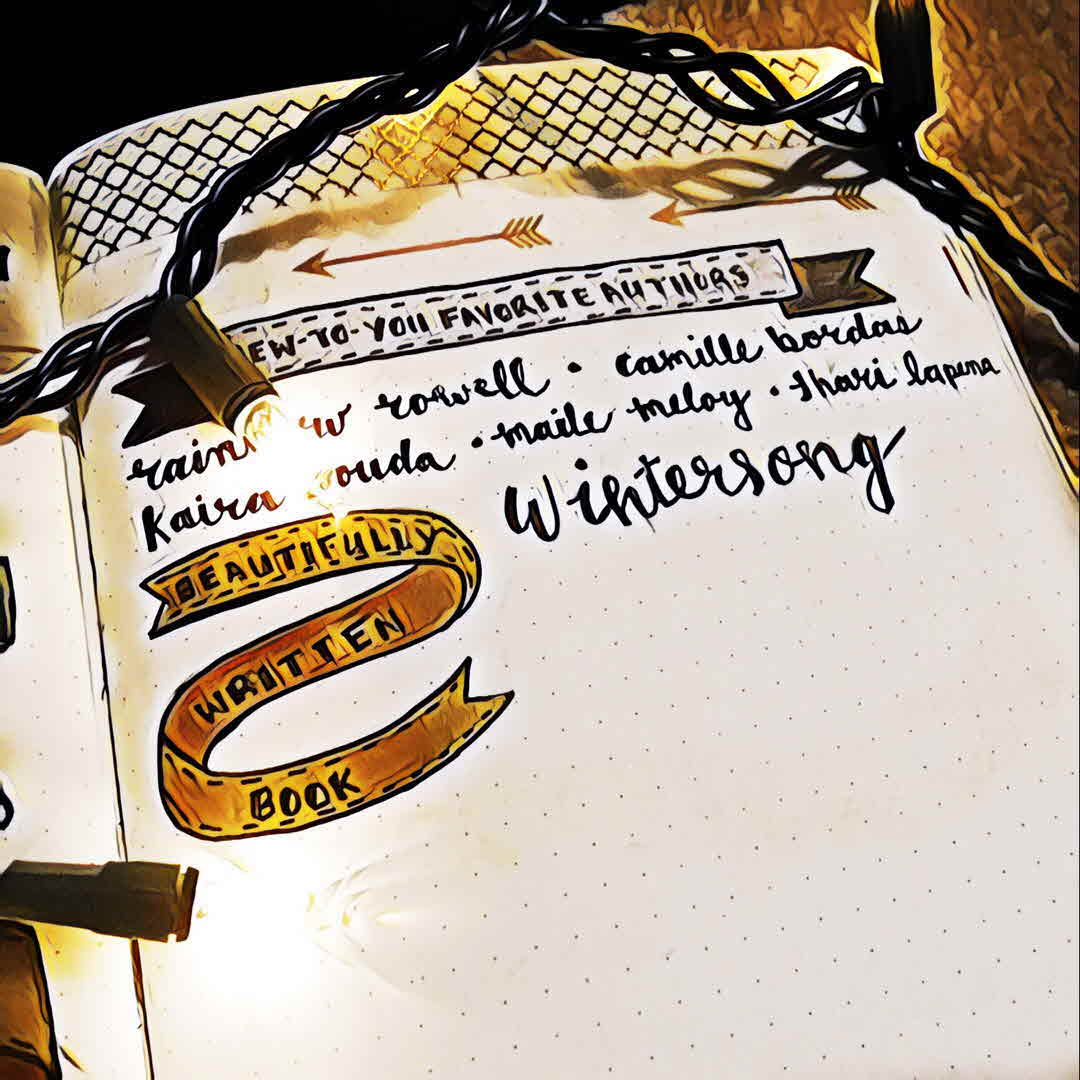 EW-TO-YOU FAVORITE AUTHORS
rain w rowell • camille bordas
Kaira ouda • maile meloy • shari lapena
Wintersong
BEAUTIFULLY
WRITTEN
BOOK